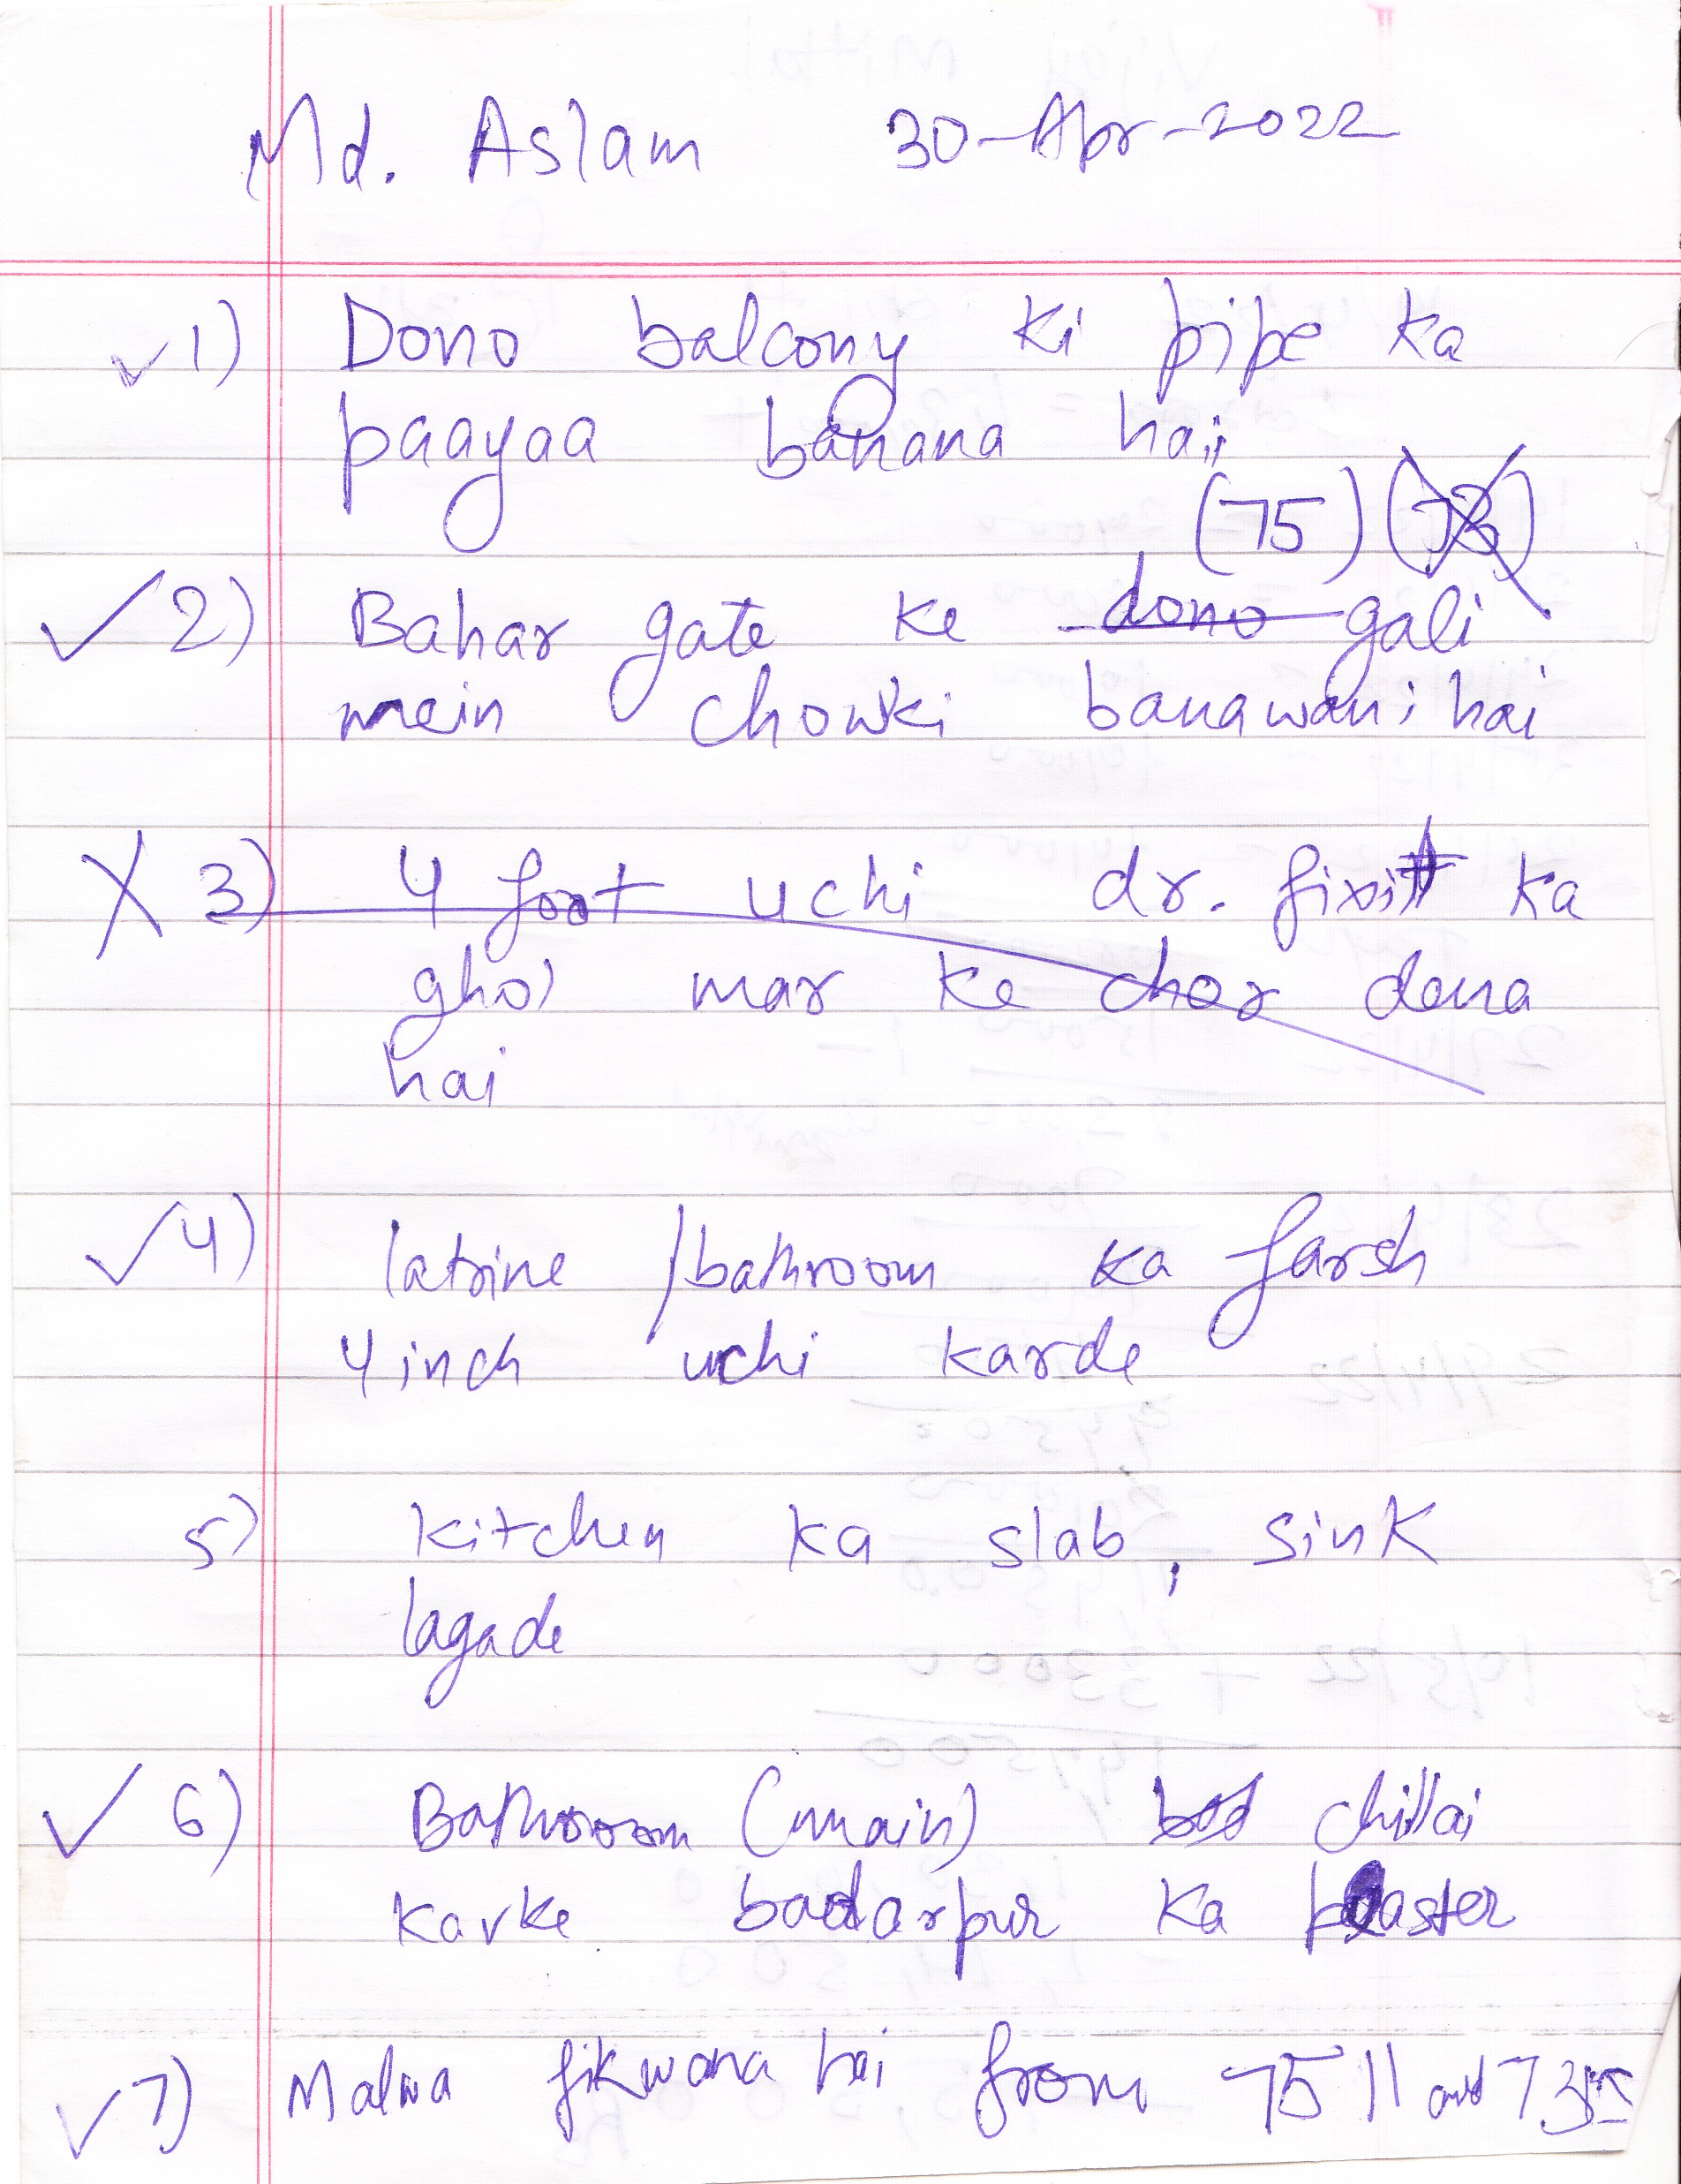 Md. Aslam 30-Apr-2022
✓ 1) Dono balcony ki pipe ka
paayaa banana hai
(75) (73)
✓ 2) Bahar gate ke dono gali
mein chowki banawani hai
X 3) 4 foot uchi dr. fixit ka
ghol mar ke chor dena
hai
✓ 4) latrine / bathroom ka farsh
4 inch uchi karde
5) Kitchen ka slab, sink
lagade
✓ 6) Bathrooom (main) chillai
karke badarpur ka plaster
✓ 7) Malwa fikwana hai from 75 11 and 73